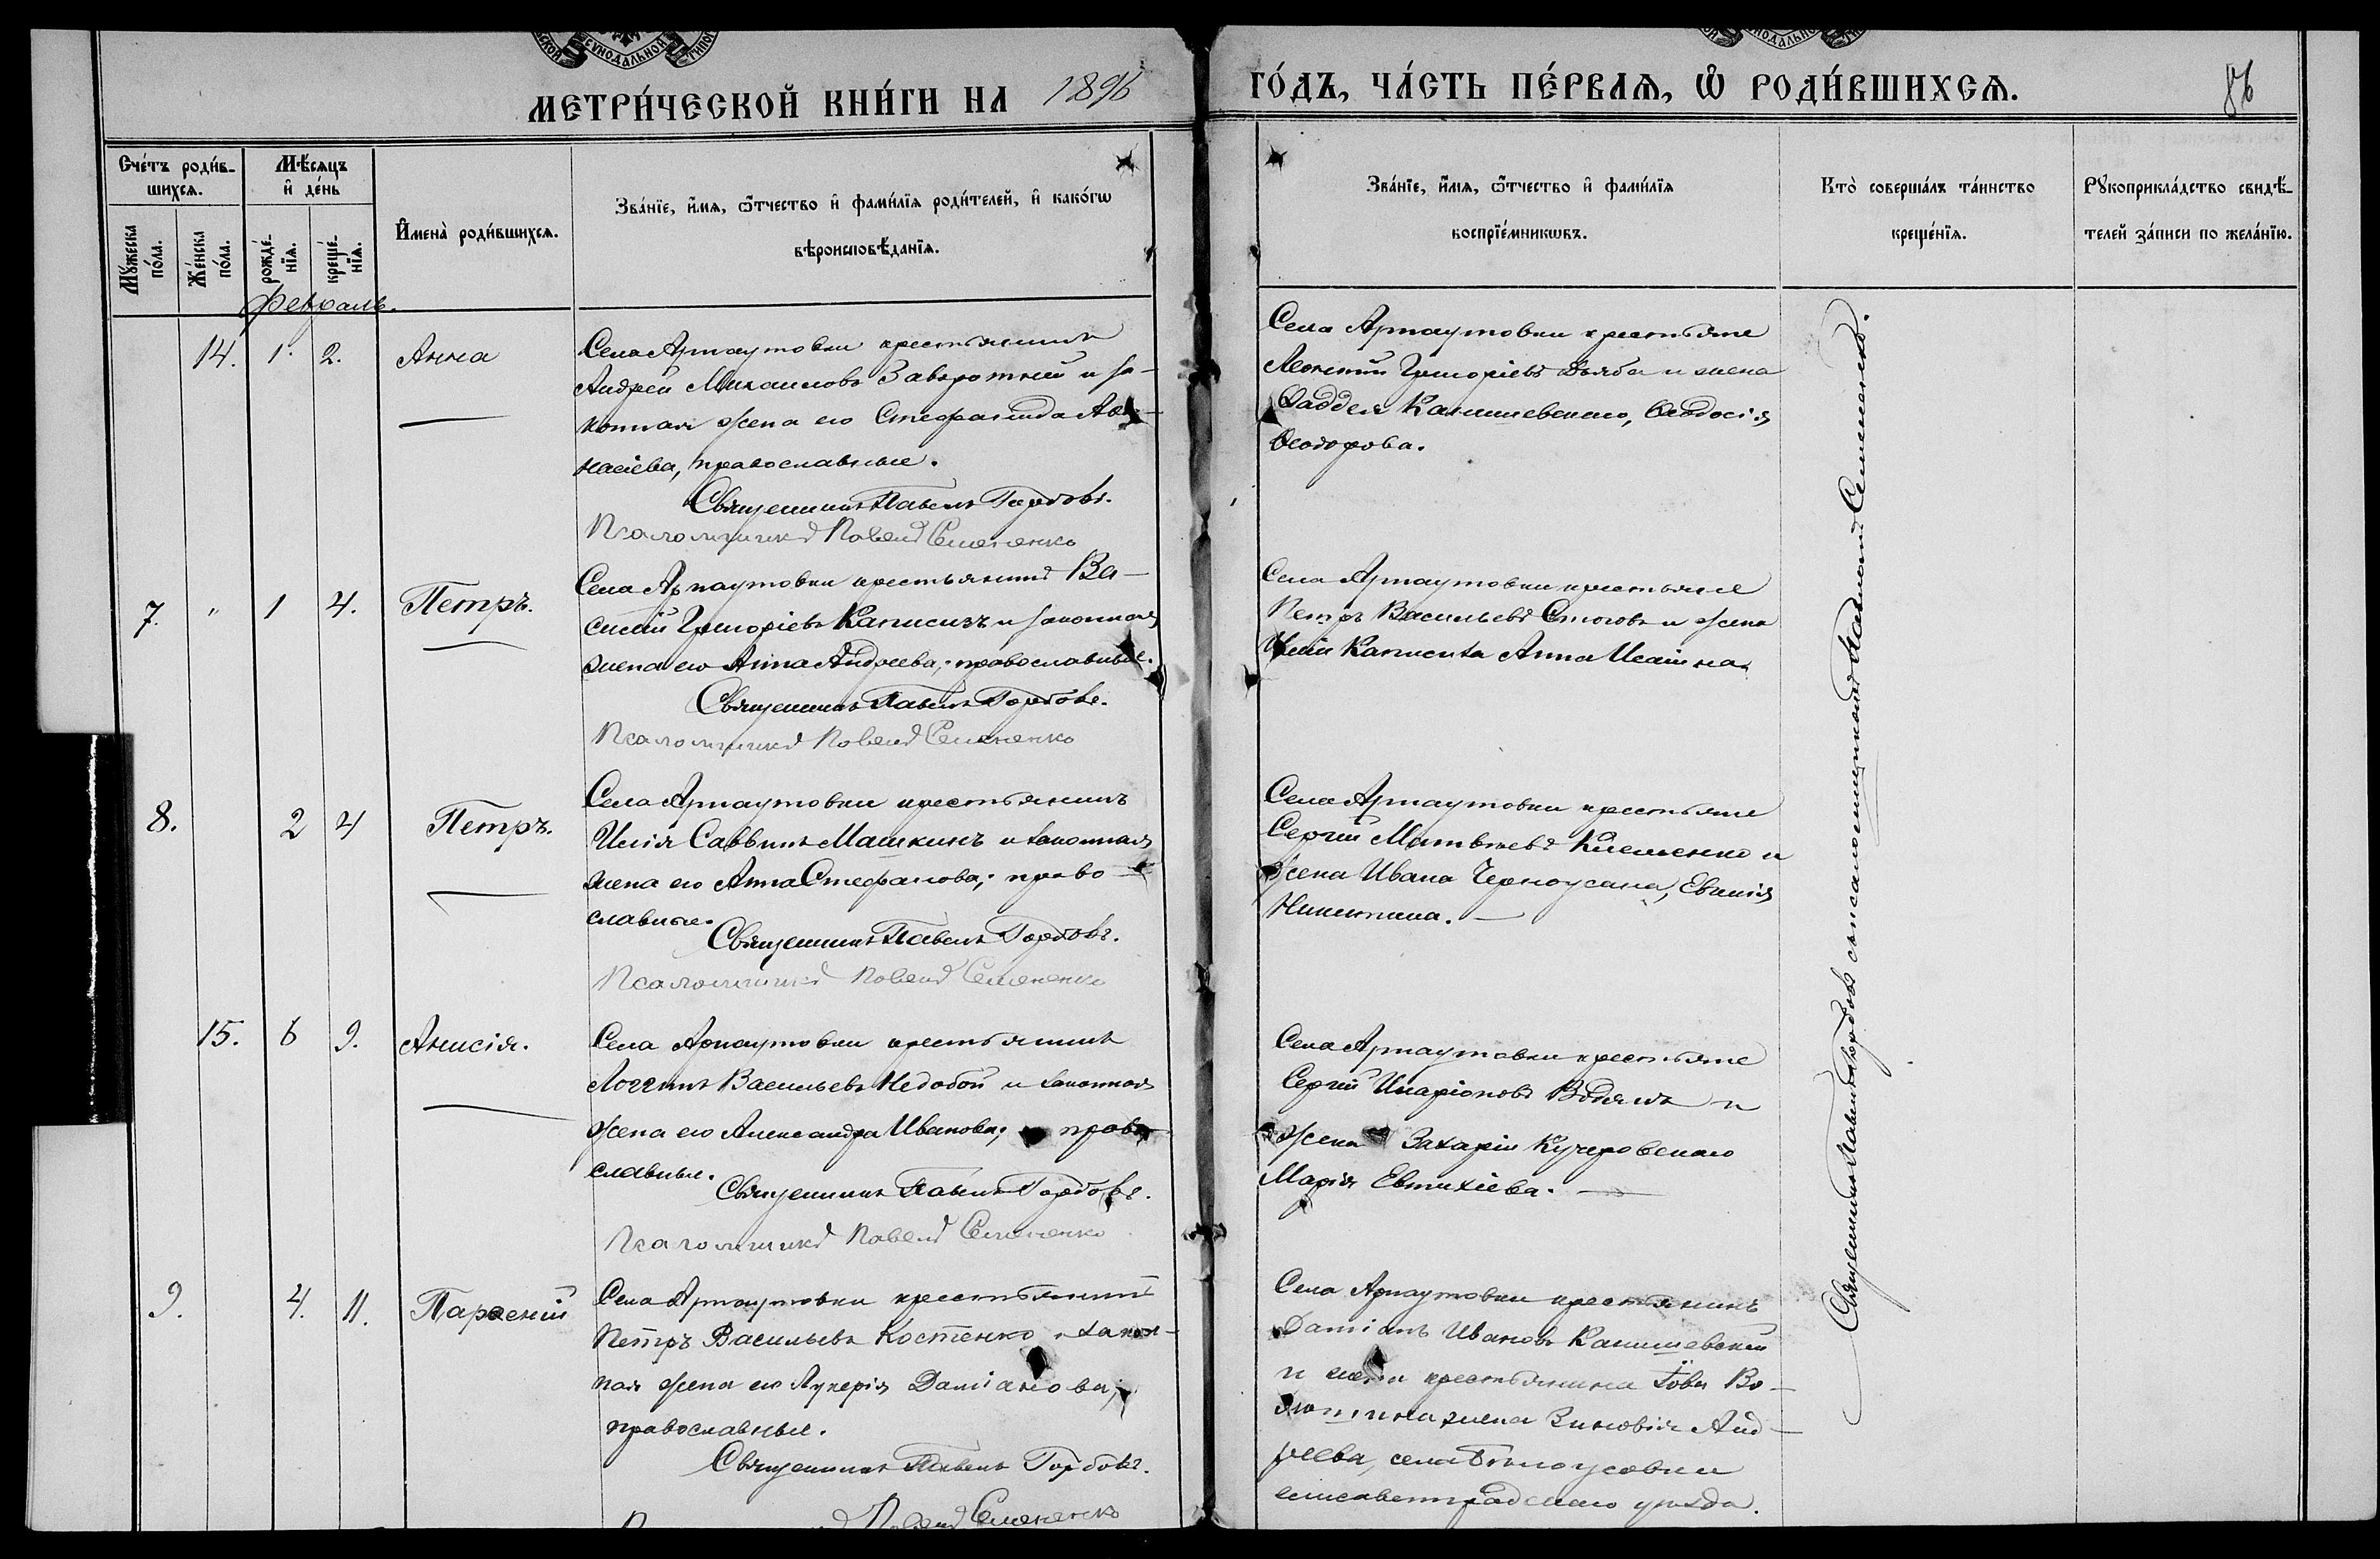 СѴНОДАЛЬНОЙ
МЕТРИ́ЧЕСКОЙ КНИ́ГИ НА 1896
ГО́ДЪ, ЧА́СТЬ ПЕ́РВАЯ, Ѡ҆ РОДИ́ВШИХСЯ.
86
Сче́тъ роди́в-
шихся.
Мѣ́сяцъ
и҆ де́нь
Мꙋ́жеска
по́ла.
Же́нска
по́ла.
рожде́-
нїя.
креще́-
нїя.
И҆мена̀ роди́вшихся.
Зва́нїе, и҆́мя, ѻ҆́тчество и҆ фами́лїя роди́телей, и҆ како́гѡ
вѣроисповѣ́данїя.
Зва́нїе, и҆́мя, ѻ҆́тчество и҆ фами́лїя
воспрїе́мникѡвъ.
Кто̀ соверша́лъ та́инство
креще́нїя.
Рꙋкоприкла́дство свидѣ́-
телей за́писи по жела́нїю.
Февраль.
14. 1. 2. Анна
Села Арнаутовки крестьянинъ
Андрей Михаиловъ Заворотний и за-
конная жена его Стефанида Афа-
насіева, православные.
Священникъ Павелъ Горбовъ.
Псаломщикъ Павелъ Семененко
Села Арнаутовки крестьяне
Леонтій Григоріевъ и жена
Фаддея Калишевскаго, Феодосія
Феодорова.
7. " 1 4. Петръ.
Села Арнаутовки крестьянинъ Ва-
силій Григоріевъ Каписизъ и законная
жена его Анна Андреева, православные.
Священникъ Павелъ Горбовъ.
Псаломщикъ Павелъ Семененко
Села Арнаутовки крестьяне
Петръ Васильевъ и жена
Анна Исаіина.
8. 2 4 Петръ.
Села Арнаутовки крестьянинъ
Илія Саввинъ Машкинъ и законная
жена его Анна Стефанова, право-
славные.
Священникъ Павелъ Горбовъ.
Псаломщикъ Павелъ Семененко
Села Арнаутовки крестьяне
Сергій Матвѣевъ Клеменко и
жена Ивана Черноусана,
Никитина.
15. 6 9. Анисія.
Села Арнаутовки крестьянинъ
Логгинъ Васильевъ Недобой и законная
жена его Александра Иванова, право-
славные.
Священникъ Павелъ Горбовъ.
Псаломщикъ Павелъ Семененко
Села Арнаутовки крестьяне
Сергій Иларіоновъ и
жена Захарія Кучеровскаго
Марія Евтихіева.
9. 4. 11. Парѳеній
Села Арнаутовки крестьянинъ
Петръ Васильевъ Костенко и закон-
ная жена его Лукерія Даміанова,
православные.
Священникъ Павелъ Горбовъ.
Павелъ Семененко
Села Арнаутовки крестьянинъ
Даміанъ Ивановъ Калишевскій
и крестьянина Іова
жена Зиновія Анд-
реева, села Бѣлоусовки
елисаветградскаго уѣзда.
Священникъ Павелъ Горбовъ съ псаломщикомъ Павломъ Семененко.